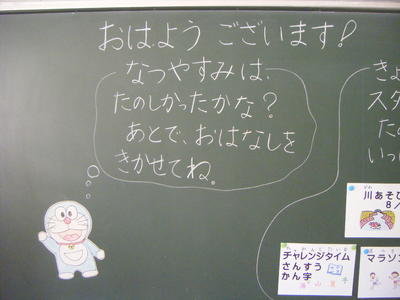 おはようございます!
なつやすみは、
たのしかったかな?
あとで、おはなしを
きかせてね。
きょ
スタ
たの
いっ
川あそび
8/
チャレンジタイム
さんすう
かん字
マラソン